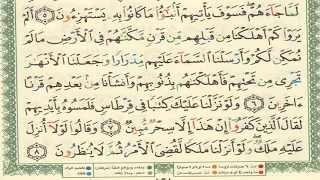 لَمَّا جَآءَهُمْ فَسَوْفَ يَأْتِيهِمْ أَنۢبَٰٓؤُا۟ مَا كَانُوا۟ بِهِۦ يَسْتَهْزِءُونَ ٥ أَلَمْ
يَرَوْا۟ كَمْ أَهْلَكْنَا مِن قَبْلِهِم مِّن قَرْنٍ مَّكَّنَّٰهُمْ فِى ٱلْأَرْضِ مَا لَمْ
نُمَكِّن لَّكُمْ وَأَرْسَلْنَا ٱلسَّمَآءَ عَلَيْهِم مِّدْرَارًا وَجَعَلْنَا ٱلْأَنْهَٰرَ
تَجْرِى مِن تَحْتِهِمْ فَأَهْلَكْنَٰهُم بِذُنُوبِهِمْ وَأَنشَأْنَا مِنۢ بَعْدِهِمْ قَرْنًا
ءَاخَرِينَ ٦ وَلَوْ نَزَّلْنَا عَلَيْكَ كِتَٰبًا فِى قِرْطَاسٍ فَلَمَسُوهُ بِأَيْدِيهِمْ
لَقَالَ ٱلَّذِينَ كَفَرُوٓا۟ إِنْ هَٰذَآ إِلَّا سِحْرٌ مُّبِينٌ ٧ وَقَالُوا۟ لَوْلَآ أُنزِلَ
عَلَيْهِ مَلَكٌ وَلَوْ أَنزَلْنَا مَلَكًا لَّقُضِىَ ٱلْأَمْرُ ثُمَّ لَا يُنظَرُونَ ٨